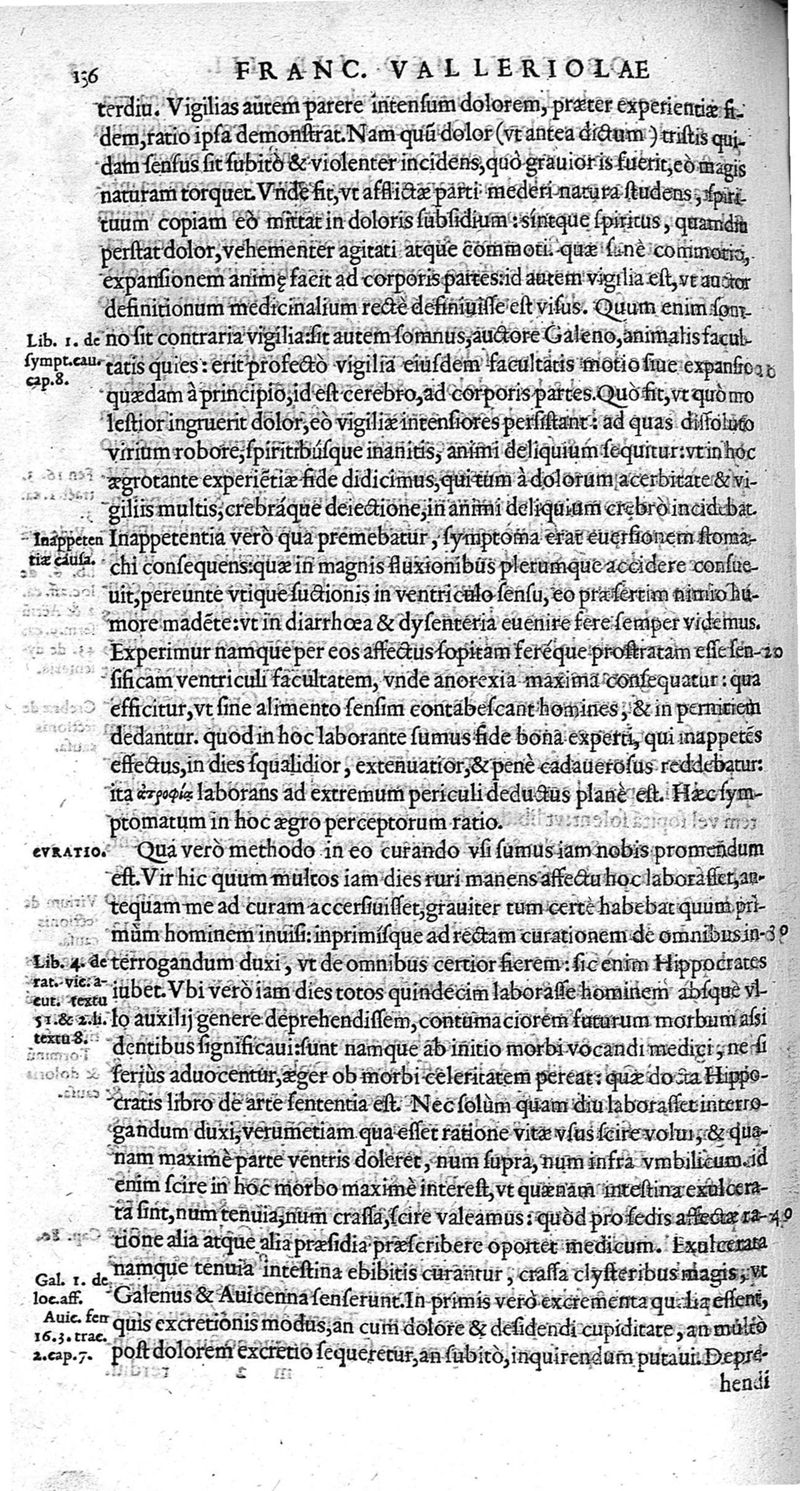 136
FRANC. VALLERIOLAE
terdiu. Vigilias autem parere intensum dolorem, præter experientiæ fi-
dem, ratio ipsa demonstrat. Nam quū dolor (vt antea dictum) tristis qui-
dam sensus sit subitò & violenter incidens, quò grauior is fuerit, eò magis
naturam torquet. Vnde fit, vt afflictæ parti mederi natura studens, spiri-
tuum copiam eò mittat in doloris subsidium: sintque spiritus, quamdiu
perstat dolor, vehementer agitati atque cōmoti. quæ sanè commotio,
expansionem animę facit ad corporis partes: id autem vigilia est, vt auctor
definitionum medicinalium rectè definiuisse est visus. Quum enim som-
Lib. 1. de
sympt. cau.
cap. 8.
no sit contraria vigilia: sit autem somnus, auctore Galeno, animalis facul-
tatis quies: erit profectò vigilia eiusdem facultatis motio siue expansio 10
quædam à principio, id est cerebro, ad corporis partes. Quò fit, vt quò mo
lestior ingruerit dolor, eò vigiliæ intensiores persistant: ad quas dissoluto
virium robore, spiritibúsque inanitis, animi deliquium sequitur: vt in hoc
ægrotante experiētiæ fide didicimus, qui tum à dolorum acerbitate & vi-
giliis multis, crebráque deiectione, in animi deliquium crebrò incidebat.
Inappeten
tiæ causa.
Inappetentia verò qua premebatur, symptoma erat euersionem stoma-
chi consequens: quæ in magnis fluxionibus plerumque accidere consue-
uit, pereunte vtique suctionis in ventriculo sensu, eo præsertim nimio hu-
more madēte: vt in diarrhœa & dysenteria euenire fere semper videmus.
Experimur namque per eos affectus sopitam feréque prostratam esse sen- 20
sificam ventriculi facultatem, vnde anorexia maxima consequatur: qua
efficitur, vt sine alimento sensim contabescant homines, & in perniciem
dedantur. quod in hoc laborante sumus fide bona experti, qui inappetēs
effectus, in dies squalidior, extenuatior, & penè cadauerosus reddebatur:
ita ἀτροφίᾳ laborans ad extremum periculi deductus planè est. Hæc sym-
ptomatum in hoc ægro perceptorum ratio.
CVRATIO.
Qua verò methodo in eo curando vsi sumus iam nobis promendum
est. Vir hic quum multos iam dies ruri manens affectu hoc laborasset, an-
tequam me ad curam accersiuisset, grauiter tum certè habebat quum pri-
mùm hominem inuisi: inprimísque ad rectam curationem de omnibus in- 30
Lib. 4. de
rat. vic. a-
cut. textu
51. & 2. li.
textu 8.
terrogandum duxi, vt de omnibus certior fierem: sic enim Hippocrates
iubet. Vbi verò iam dies totos quindecim laborasse hominem absque vl-
lo auxilij genere deprehendissem, contumaciorem futurum morbum assi
dentibus significaui: sunt namque ab initio morbi vocandi medici, ne si
seriùs aduocentur, æger ob morbi celeritatem pereat: quæ docta Hippo-
cratis libro de arte sententia est. Nec solùm quam diu laborasset interro-
gandum duxi, verumetiam qua esset ratione vitæ vsus scire volui, & qua-
nam maximè parte ventris doleret, num supra, num infra vmbilicum. id
enim scire in hoc morbo maximè interest, vt quænam intestina exulcera-
ta sint, num tenuia, num crassa, scire valeamus: quòd pro sedis affectæ ra- 40
tione alia atque alia præsidia præscribere oportet medicum. Exulcerata
Gal. 1. de
loc. aff.
Auic. fen
16. 3. trac.
2. cap. 7.
namque tenuia intestina ebibitis curantur, crassa clysteribus magis, vt
Galenus & Auicenna senserunt. In primis verò excrementa qualia essent,
quis excretionis modus, an cum dolore & desidendi cupiditate, an multò
post dolorem excretio sequeretur, an subitò, inquirendum putaui. Depre-
hendi